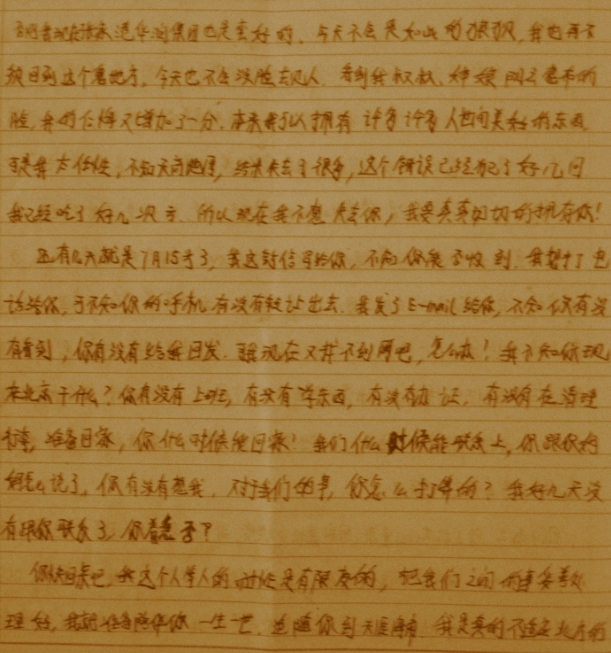 也是蛮好的。今天不会是如此的狼狈，我也再
回到这个鬼地方，今天也不会没脸去见人。看到我叔叔、
脸，我的伤悲又增加了一分。本来我可以拥有许多许多人世间美好的东西，
可是我太任性，不知天高地厚，结果失去了很多，这个错误已经犯了好几回
我已经吃了好几次亏。所以现在我不想失去你，我要真真切切的拥有你！
还有几天就是7月15号了，我这封信写给你，不知你能否收到。我想打电
话给你，可不知你的手机有没有转让出去。我发了E-mail给你，不知你有没
有看到，你有没有给我回发。可我现在又找不到网吧，怎么办！我不知你现
在北京干什么？你有没有上班，有没有学东西，有没有办证，有没有在清理
准备回家，你什么时候能回家？我们什么时候能联系上，你跟你妈
怎么说了，你有没有想我，对于我们的事，你怎么打算的？我好几天没
有跟你联系了，你着急否？
你快回来吧，我这个人等人的时候是有限度的，把我们之间的事妥善处
理好，我就准备陪伴你一生一世，追随你到天涯海角。我是真的不适应北方的